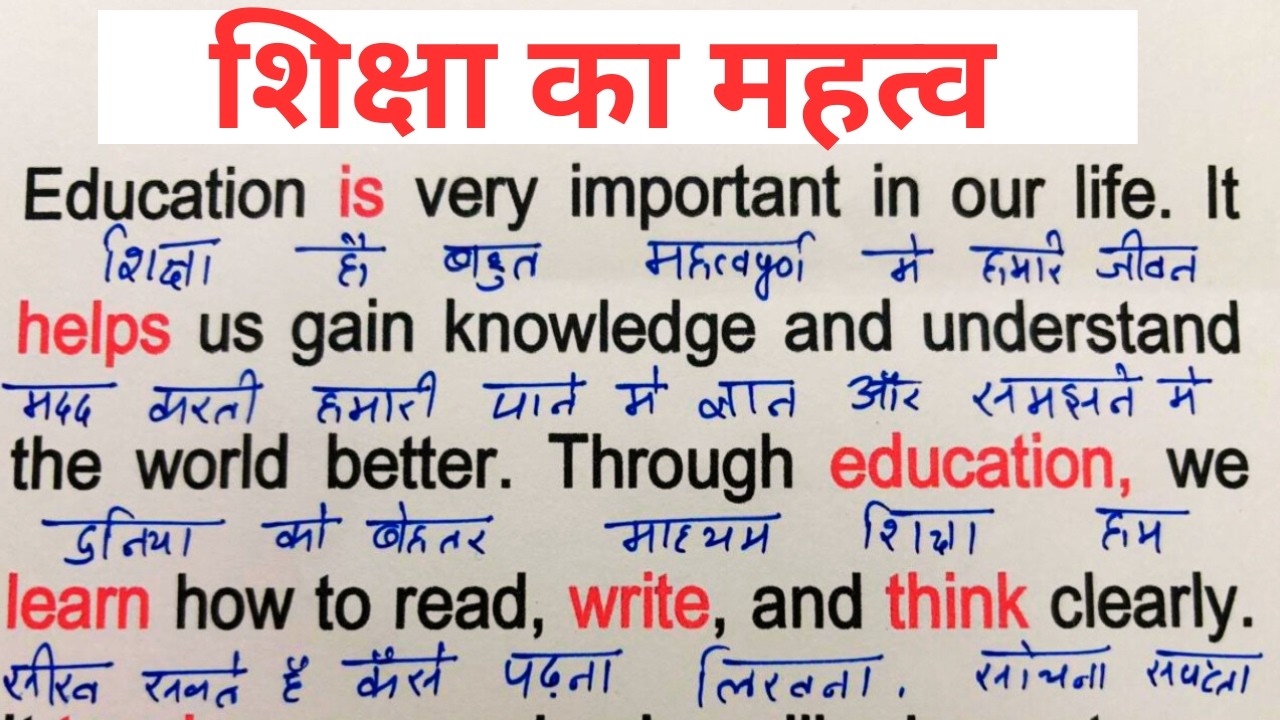 शिक्षा का महत्व
Education is very important in our life. It
शिक्षा है बहुत महत्वपूर्ण मे हमारे जीवन
helps us gain knowledge and understand
मदद करती हमारी पाने मे ज्ञान और समझने मे
the world better. Through education, we
दुनिया को बेहतर माध्यम शिक्षा हम
learn how to read, write, and think clearly.
सीख सकते है कैसे पढ़ना लिखना , सोचना स्पष्टता